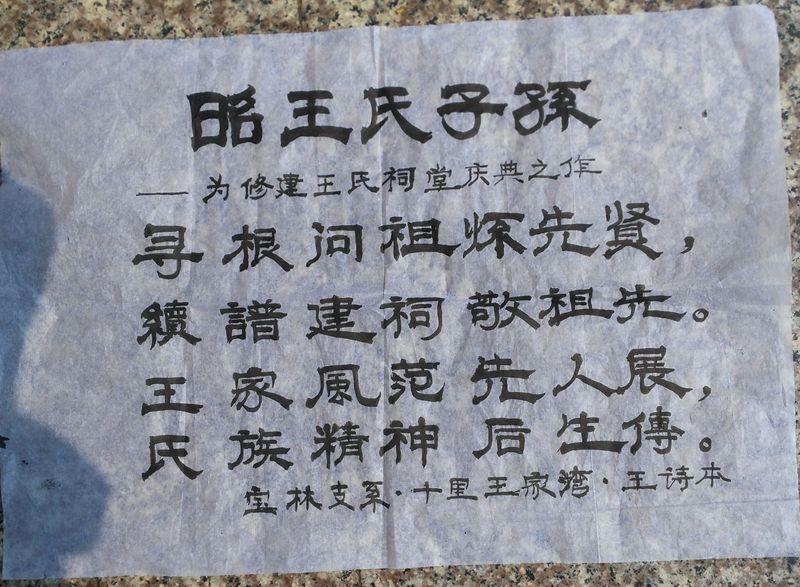 昭王氏子孫
——为修建王氏祠堂庆典之作
寻根问祖怀先贤，
續譜建祠敬祖先。
王家風范先人展，
氏族精神后生傳。
宝林支系·十里王家湾·王诗本